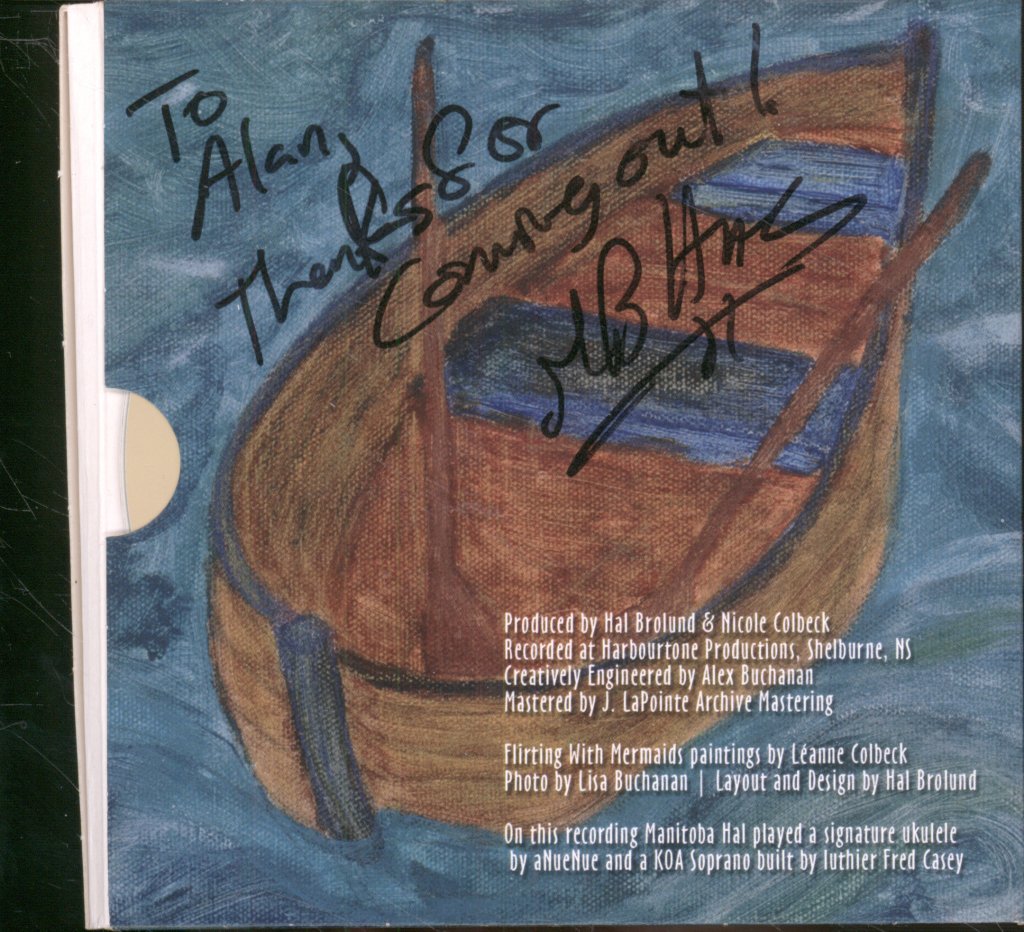 To
Alan,
Thanks for
Coming out!
MB Hal
Produced by Hal Brolund & Nicole Colbeck
Recorded at Harbourtone Productions, Shelburne, NS
Creatively Engineered by Alex Buchanan
Mastered by J. LaPointe Archive Mastering
Flirting With Mermaids paintings by Léanne Colbeck
Photo by Lisa Buchanan | Layout and Design by Hal Brolund
On this recording Manitoba Hal played a signature ukulele
by aNueNue and a KOA Soprano built by luthier Fred Casey